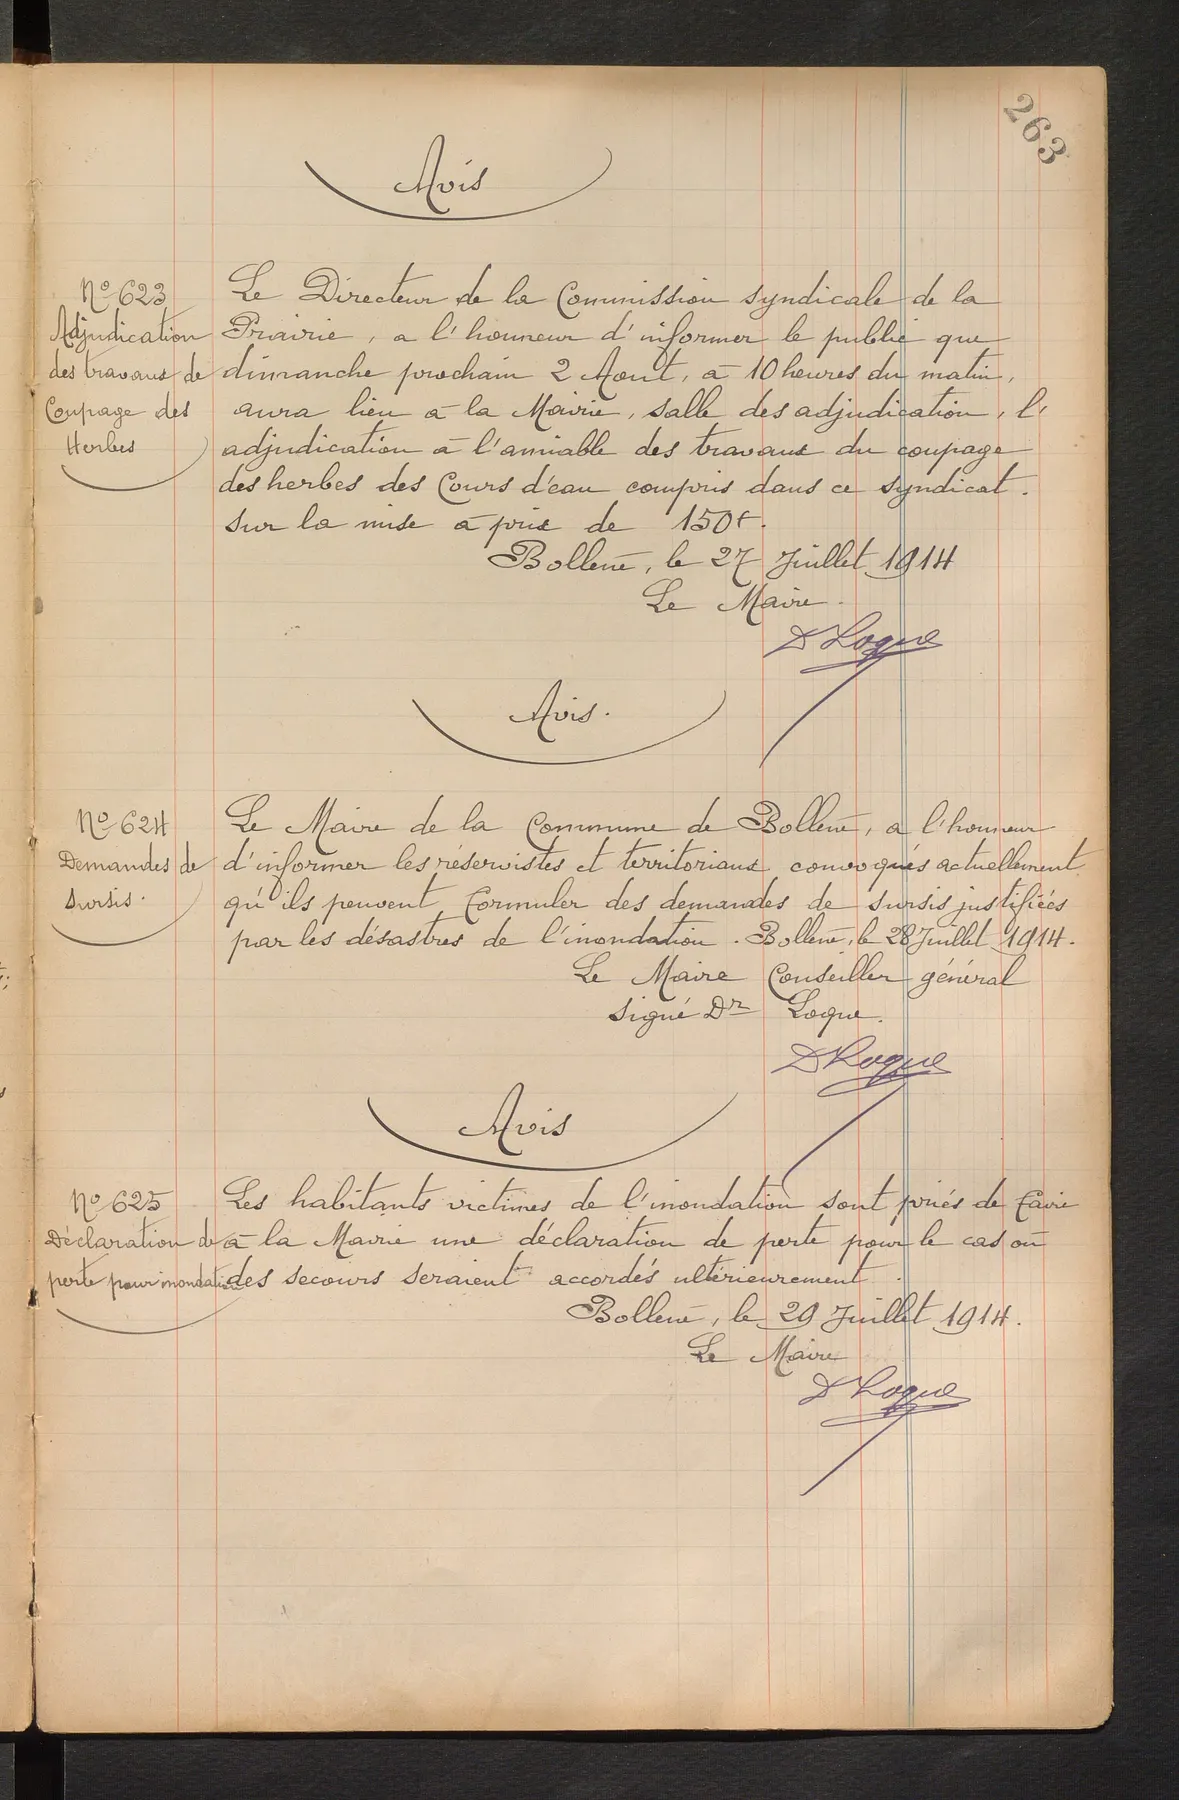 263
Avis
Nº 623
Adjudication
des travaux de
Coupage des
Herbes
Le Directeur de la Commission syndicale de la
Prairie, a l'honneur d'informer le public que
dimanche prochain 2 Aout, à 10 heures du matin,
aura lieu à la Mairie, salle des adjudication, l'
adjudication à l'amiable des travaux du coupage
des herbes des Cours d'eau compris dans ce syndicat.
sur la mise à prix de 150f.
Bollène, le 27 Juillet 1914
Le Maire.
Dr Loque
Avis.
Nº 624
Demandes de
Sursis.
Le Maire de la Commune de Bollène, a l'honneur
d'informer les réservistes et territoriaux convoqués actuellement
qu'ils peuvent formuler des demandes de sursis justifiées
par les désastres de l'inondation. Bollène, le 28 Juillet 1914.
Le Maire Conseiller général
signé Dr Loque.
Dr Loque
Avis
Nº 625
Déclaration de
perte pour inondation
Les habitants victimes de l'inondation sont priés de faire
à la Mairie une déclaration de perte pour le cas où
des secours seraient accordés ultérieurement.
Bollène, le 29 Juillet 1914.
Le Maire
Dr Loque